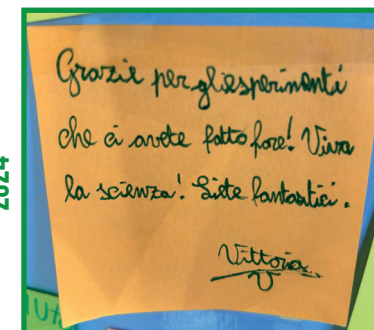 2024
Grazie per gli esperimenti
che ci avete fatto fare! Viva
la scienza! Siete fantastici.
Vittoria